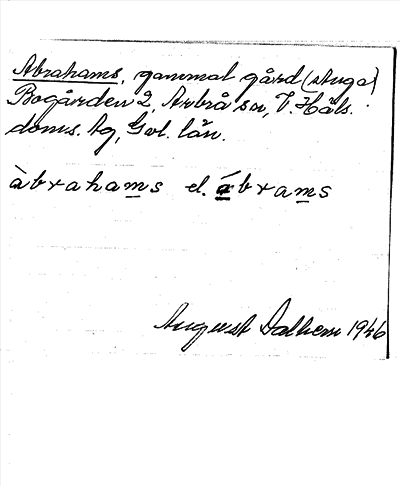 Abrahams, gammal gård (stuga)
Bogården 2, Arbrå sn, V. Häls.
doms. lg, Gvl. län.
àbrahams el. ábrams
August Dalhem 1946